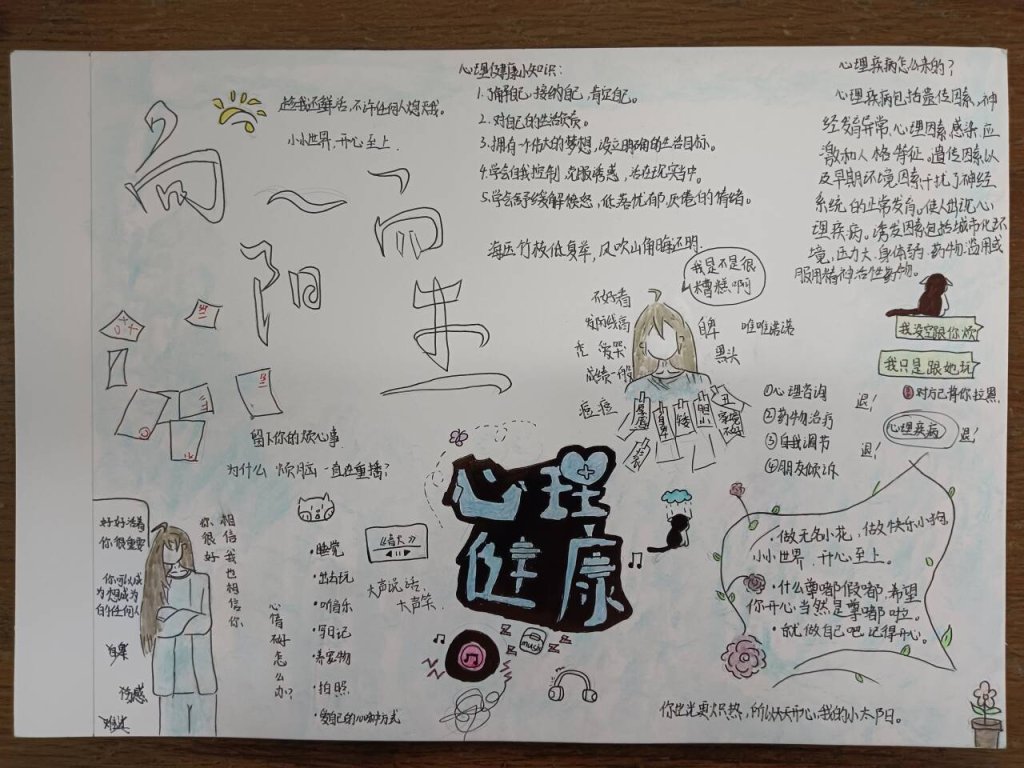 向阳而生
趁我还鲜活,不许任何人熄灭我。
小小世界,开心至上.
心理健康小知识:
1.了解自己,接纳自己,肯定自己。
2.对自己的生活负责。
3.拥有一个伟大的梦想,设立明确的生活目标。
4.学会自我控制,克服诱惑,活在现实当中。
5.学会舒缓解倦怠,低落忧郁,厌倦的情绪。
海压竹枝低复举,风吹山角晦还明.
心理疾病怎么来的?
心理疾病包括遗传因素,神
经发育异常,心理因素,感染,应
激和人格特征。遗传因素以
及早期环境因素,干扰了神经
系统的正常发育。使人出现心
理疾病。诱发因素包括城市化环
境,压力大,身体药,药物滥用或
服用精神活性药物。
我是不是很
糟糕啊
不好看
发际线高
爱哭
成绩一般
痘痘
自卑
唯唯诺诺
黑头
自卑
矮
胆小
丑
家境
不好
我没空跟你烦
我只是跟她玩
对方已将你拉黑.
退!
心理疾病
退!
退!
①心理咨询
②药物治疗
③自我调节
④朋友倾诉
留下你的烦心事
为什么烦脑一直在重播?
心理
健康
好好活着
你很重要
你可以成
为想成为
的任何人
自卑
伤感
难过
你很好
相信我也相信你
心情不好怎么办?
·睡觉
·出去玩
·听音乐
·写日记
·养宠物
·拍照
·爱自己的一切方式
《晴天》
大声说话,
大声笑.
music
·做无名小花,做快乐小狗
小小世界,开心至上。
·什么尊嘟假嘟,希望
你开心当然是尊嘟啦。
·就做自己吧,记得开心。
你比光更炽热,所以天天开心,我的小太阳。